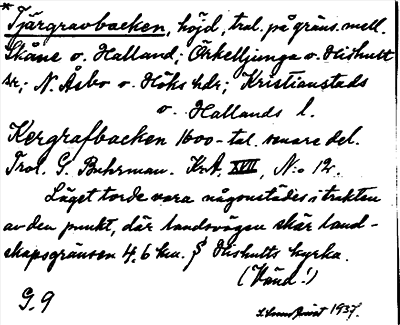 * Tjärgravbacken, höjd, tral. på gräns. mell.
Skåne o. Halland; Örkelljunga o. Hishult
sr; N. Åsbo o. Höks hdr; Kristianstads
o. Hallands l.
Kergrafbacken 1600-tal. senare del.
Trol. G. Buhrman. Kr.A, XVII, N:o 12.
Läget torde vara någonstädes i trakten
av den punkt, där landsvägen skär land-
skapsgränsen 4,6 km. S Hishults kyrka.
(Vänd!)
G. 9
1937.